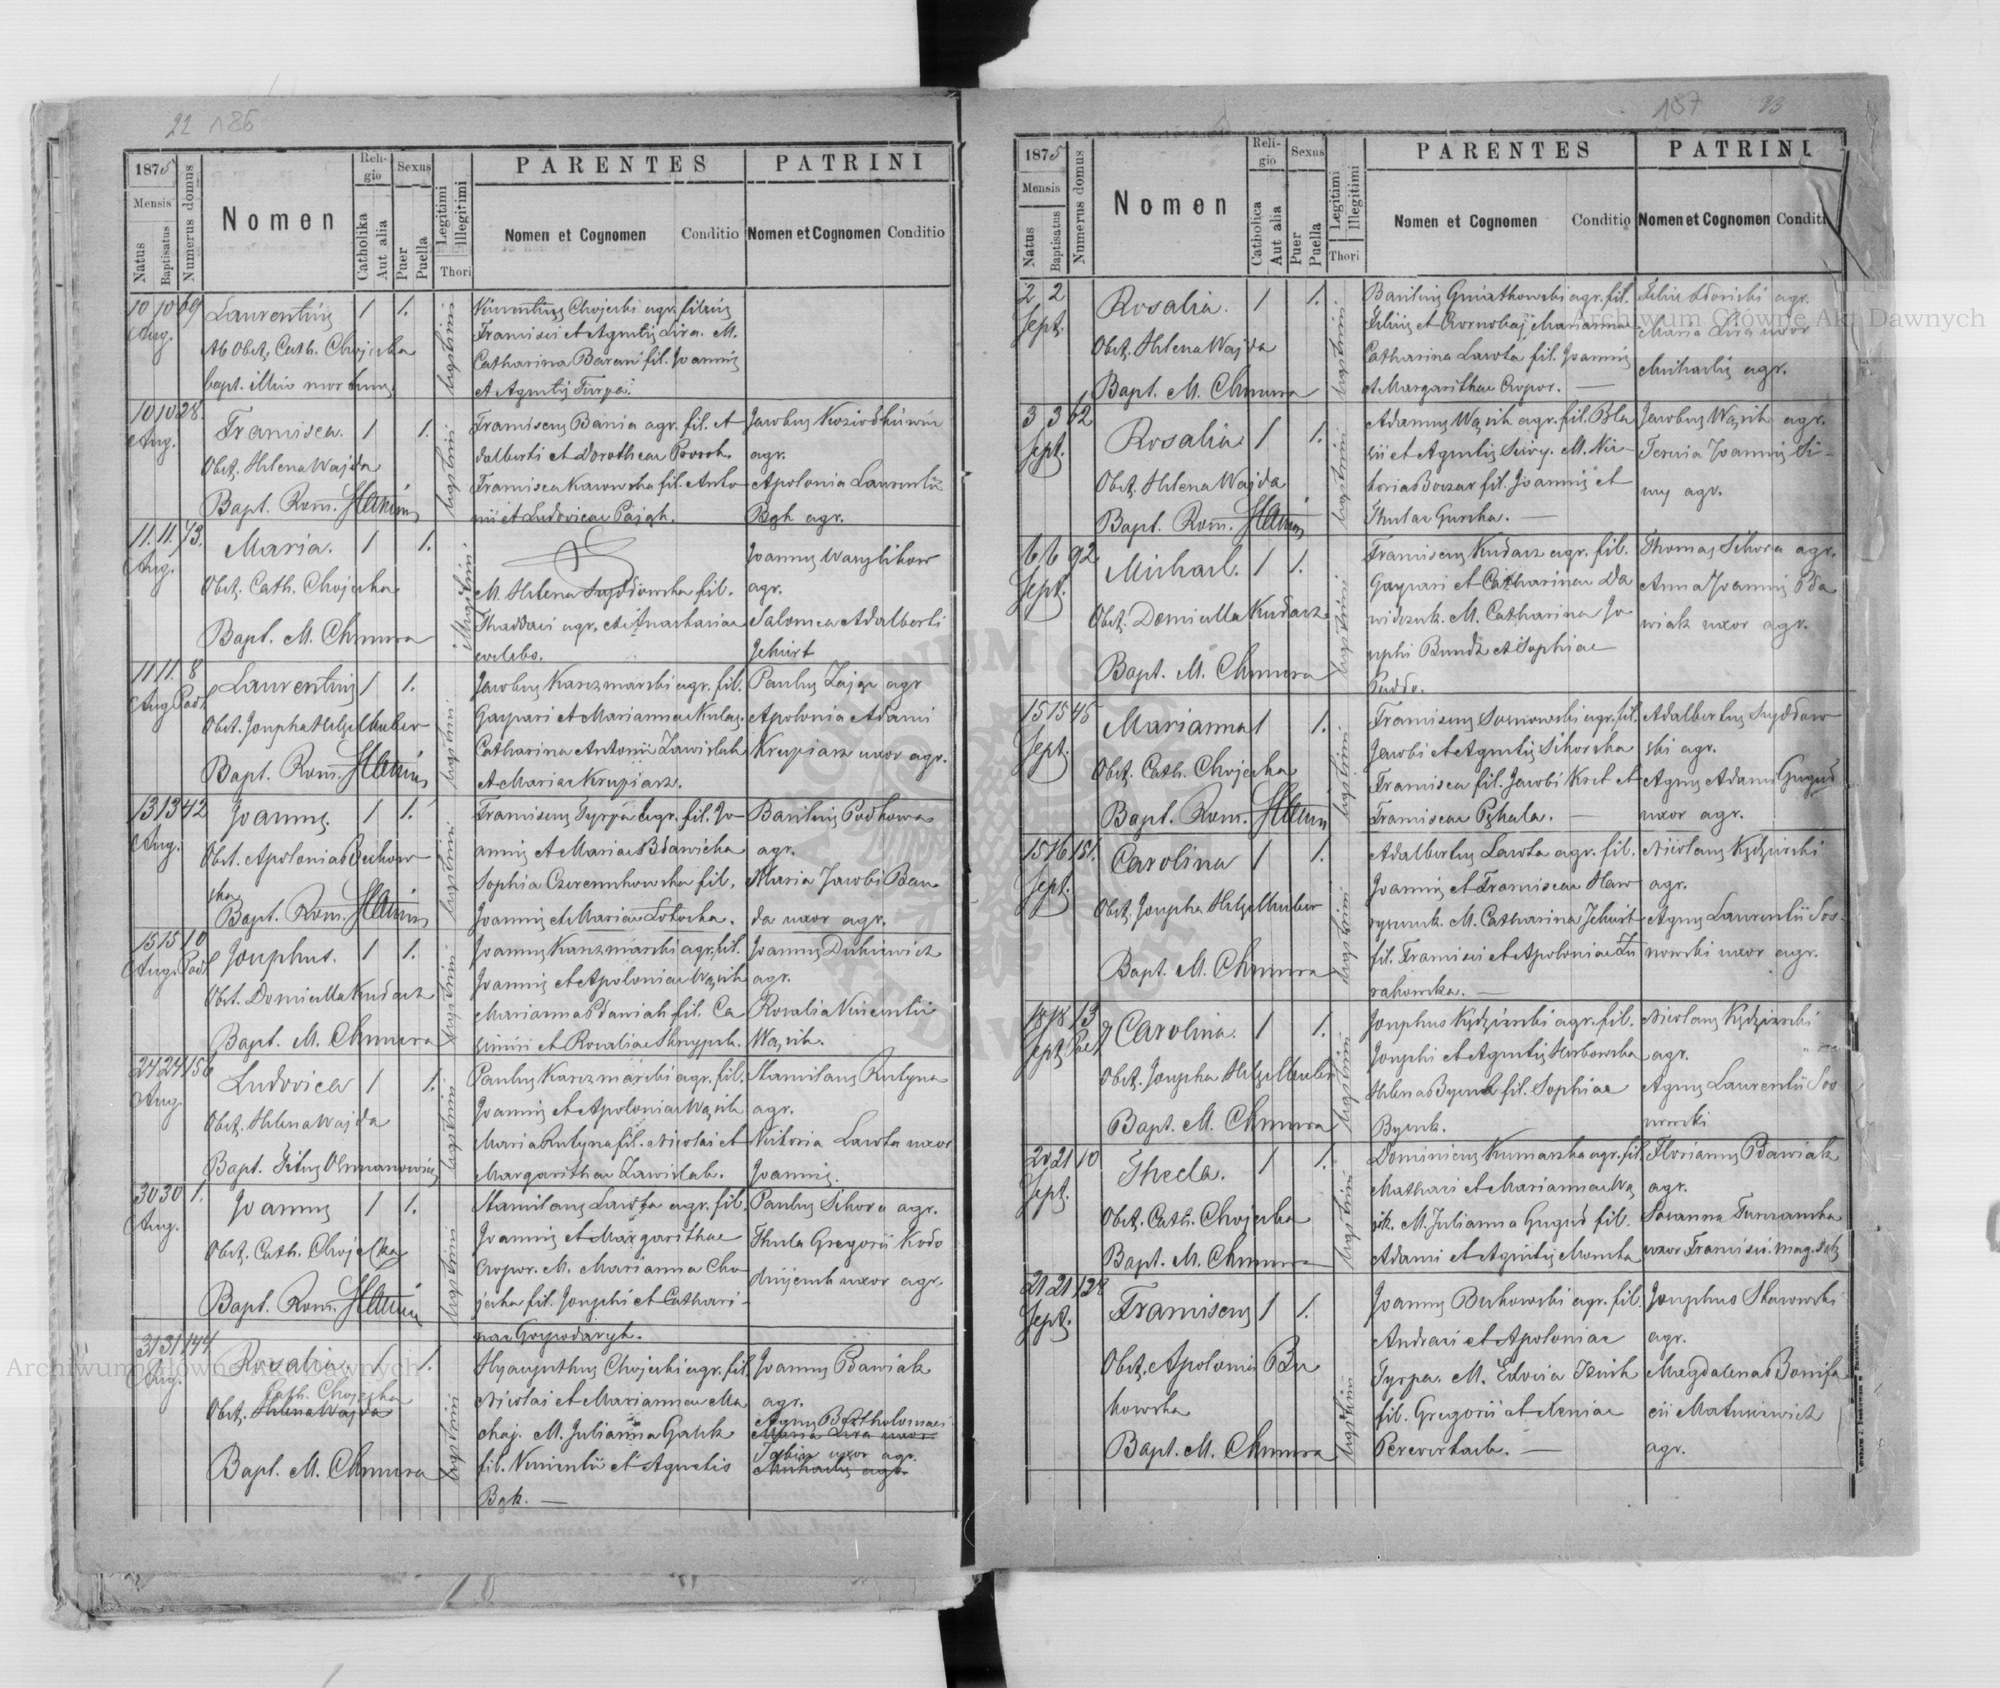 22 186
1875
Mensis
Natus
Baptisatus
Numerus domus
Nomen
Religio
Catholika
Aut alia
Sexus
Puer
Puella
Legitimi
Illegitimi
Thori
PARENTES
Nomen et Cognomen Conditio
PATRINI
Nomen et Cognomen Conditio
10 10 69 Laurentius 1 1.
Aug.
Ab Obst. Cath. Chojecka
bapt. illico mortuus
legitimi
Vincentius Chojecki agr. filius
Francisci et Agnetis Lira. M.
Catharina Baran fil. Joannis
et Agnetis Turpa.
10 10 28. Francisca. 1 1.
Aug.
Obst. Helena Wajda
Bapt. Rom.
legitimi
Franciscus Bania agr. fil. A
dalberti et Dorotheae
Francisca Karowska fil. Anto
nii et Ludovicae
Jacobus
agr.
Apolonia Laurentii
Bąk agr.
11. 11. 73. Maria. 1 1.
Aug.
Obst. Cath. Chojecka
Bapt. M. Chmura
illegitimi
M. Helena Suydowska fil.
Thaddaei agr. et Anastasiae
coelebs.
Joannes
agr.
Salomea Adalberti
Jchirt
11 11. 8 Laurentius 1 1.
Aug. Podl
Obst. Josepha Helzelhuber
Bapt. Rom.
legitimi
Jacobus Karczmarski agr. fil.
Gaspari et Mariannae Kulas.
Catharina Antonii Zawislak
et Mariae Krupiarz.
Paulus Zając agr
Apolonia Adami
Krupiarz uxor agr.
13 13 42 Joannes. 1 1.
Aug.
Obst. Apolonia Bukow
ska
Bapt. Rom.
legitimi
Franciscus Tyrpa agr. fil. Jo
annis et Mariae Zdawicka
Sophia Czeremkowska fil.
Joannis et Mariae Sotocka.
Basilius Podkowa
agr.
Maria Jacobi Ban
da uxor agr.
15 15 10 Josephus. 1 1.
Aug. Podl
Obst. Domicella Kudasz
Bapt. M. Chmura
legitimi
Joannes Karczmarski agr. fil.
Joannis et Apoloniae Wąsik
Marianna Pdawiak fil. Ca
simiri et Rosaliae Skrzypek.
Joannes Dukiewicz
agr.
Rosalia Vincentii
Wąsik.
24 24 156 Ludovica 1 1.
Aug.
Obst. Helena Wajda
Bapt. Titus Ohmanowicz
legitimi
Paulus Karczmarski agr. fil.
Joannis et Apoloniae Wąsik
Maria Rutyna fil. Nicolai et
Margarithae Zawislak.
Stanislaus Rutyna
agr.
Victoria Lawta uxor
Joannis.
30 30 1. Joannes 1 1.
Aug.
Obst. Cath. Chojecka
Bapt. Rom.
legitimi
Stanislaus Lawta agr. fil.
Joannis et Margarithae
Cropor. M. Marianna Cho
jecka fil. Josephi et Cathari-
nae Gospodaryk.
Paulus Sikora agr.
Thecla Gregorii Kodo
uxor agr.
31 31 144 Rosalia. 1 1.
Aug.
Cath. Chojecka
Obst. Helena Wajda
Bapt. M. Chmura
legitimi
Hyacynthus Chojecki agr. fil.
Nicolai et Mariannae Ma
chaj. M. Julianna Gacek
fil. Vincentii et Agnetis
Bąk.
Joannes Pdawiak
agr.
Agnes Bartholomaei
Maria Lira uxor
uxor agr.
Michaelis agr.
187 23
1875
Mensis
Natus
Baptisatus
Numerus domus
Nomen
Religio
Catholica
Aut alia
Sexus
Puer
Puella
Legitimi
Illegitimi
Thori
PARENTES
Nomen et Cognomen Conditio
PATRINI
Nomen et Cognomen Conditio
2 2 Rosalia. 1 1.
Sept.
Obst. Helena Wajda
Bapt. M. Chmura
legitimi
Basilius Gwiazdowski agr. fil.
Felicis et Mariannae
Catharina Lawta fil. Joannis
et Margarithae Cropor.
agr.
Maria Lira uxor
Michaelis agr.
3 3 62 Rosalia 1 1.
Sept.
Obst. Helena Wajda
Bapt. Rom.
legitimi
Adamus Wąsik agr. fil. Bla
sii et Agnetis M. Vic-
toria fil. Joannis et
Theclae Gurska.
Jacobus Wąsik agr.
Teresia Joannis Si-
wy agr.
6 6 92 Michael. 1 1.
Sept.
Obst. Domicella Kudasz
Bapt. M. Chmura
legitimi
Franciscus Kudasz agr. fil.
Gaspari et Catharinae Da
widczuk. M. Catharina Jo
sephi Bunda et Sophiae
Thomas Sikora agr.
Anna Joannis Pda
wiak uxor agr.
15 15 45 Marianna 1 1.
Sept.
Obst. Cath. Chojecka
Bapt. Rom.
legitimi
Franciscus Sosnowski agr. fil.
Jacobi et Agnetis Sikorska
Francisca fil. Jacobi Kret et
Franciscae Pękala.
Adalbertus Suydow
ski agr.
Agnes Adami Gugud
uxor agr.
15 16 151. Carolina 1 1.
Sept.
Obst. Josepha Helzelhuber
Bapt. M. Chmura
legitimi
Adalbertus Lawta agr. fil.
Joannis et Franciscae Haw
ryszuk. M. Catharina Jchirt
fil. Francisci et Apoloniae Zu
rakowska.
Nicolaus Kędzierski
agr.
Agnes Laurentii Sos-
nowski uxor agr.
18 18 13 Carolina. 1 1.
Sept. Podl
Obst. Josepha Helzelhuber
Bapt. M. Chmura
legitimi
Josephus Kędzierski agr. fil.
Josephi et Agnetis Herbowska
Helena fil. Sophiae
Nicolaus Kędzierski
agr.
Agnes Laurentii Sos
nowski
20 21 10 Thecla. 1 1.
Sept.
Obst. Cath. Chojecka
Bapt. M. Chmura
legitimi
Dominicus Kumaszka agr. fil.
Mathaei et Mariannae Wą
sik. M. Julianna Gugud fil.
Adami et Agnetis Mocska
Florianus Pdawiak
agr.
Susanna Turzanska
uxor Francisci mag. sch.
21 21 128 Franciscus 1 1.
Sept.
Obst. Apolonia Bu
kowska
Bapt. M. Chmura
legitimi
Joannes Bukowski agr. fil.
Andreae et Apoloniae
Tyrpa. M. Eudocia fil.
fil. Gregorii et Xeniae
Perewertach.
Josephus Skarowski
agr.
Magdalena Bonifa
cii Matusiewicz
agr.
Archiwum Główne Akt Dawnych
Archiwum Główne Akt Dawnych